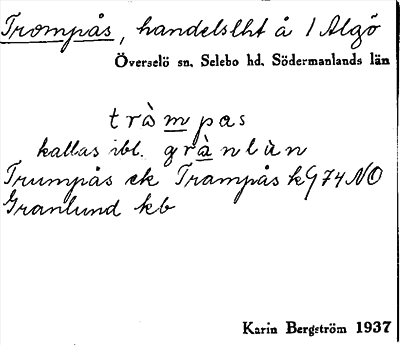 Trompås, handelslht å 1 Algö
Överselö sn. Selebo hd. Södermanlands län
tràmpas
kallas ibl. grànlùn
Trumpås ek Trampås k G 74 NO
Granlund kb
Karin Bergström 1937